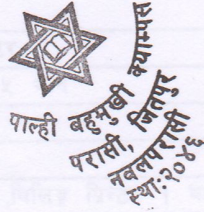 पाल्ही बहुमुखी क्याम्पस
परासी, जितपुर
नवलपरासी
स्था: २०४६